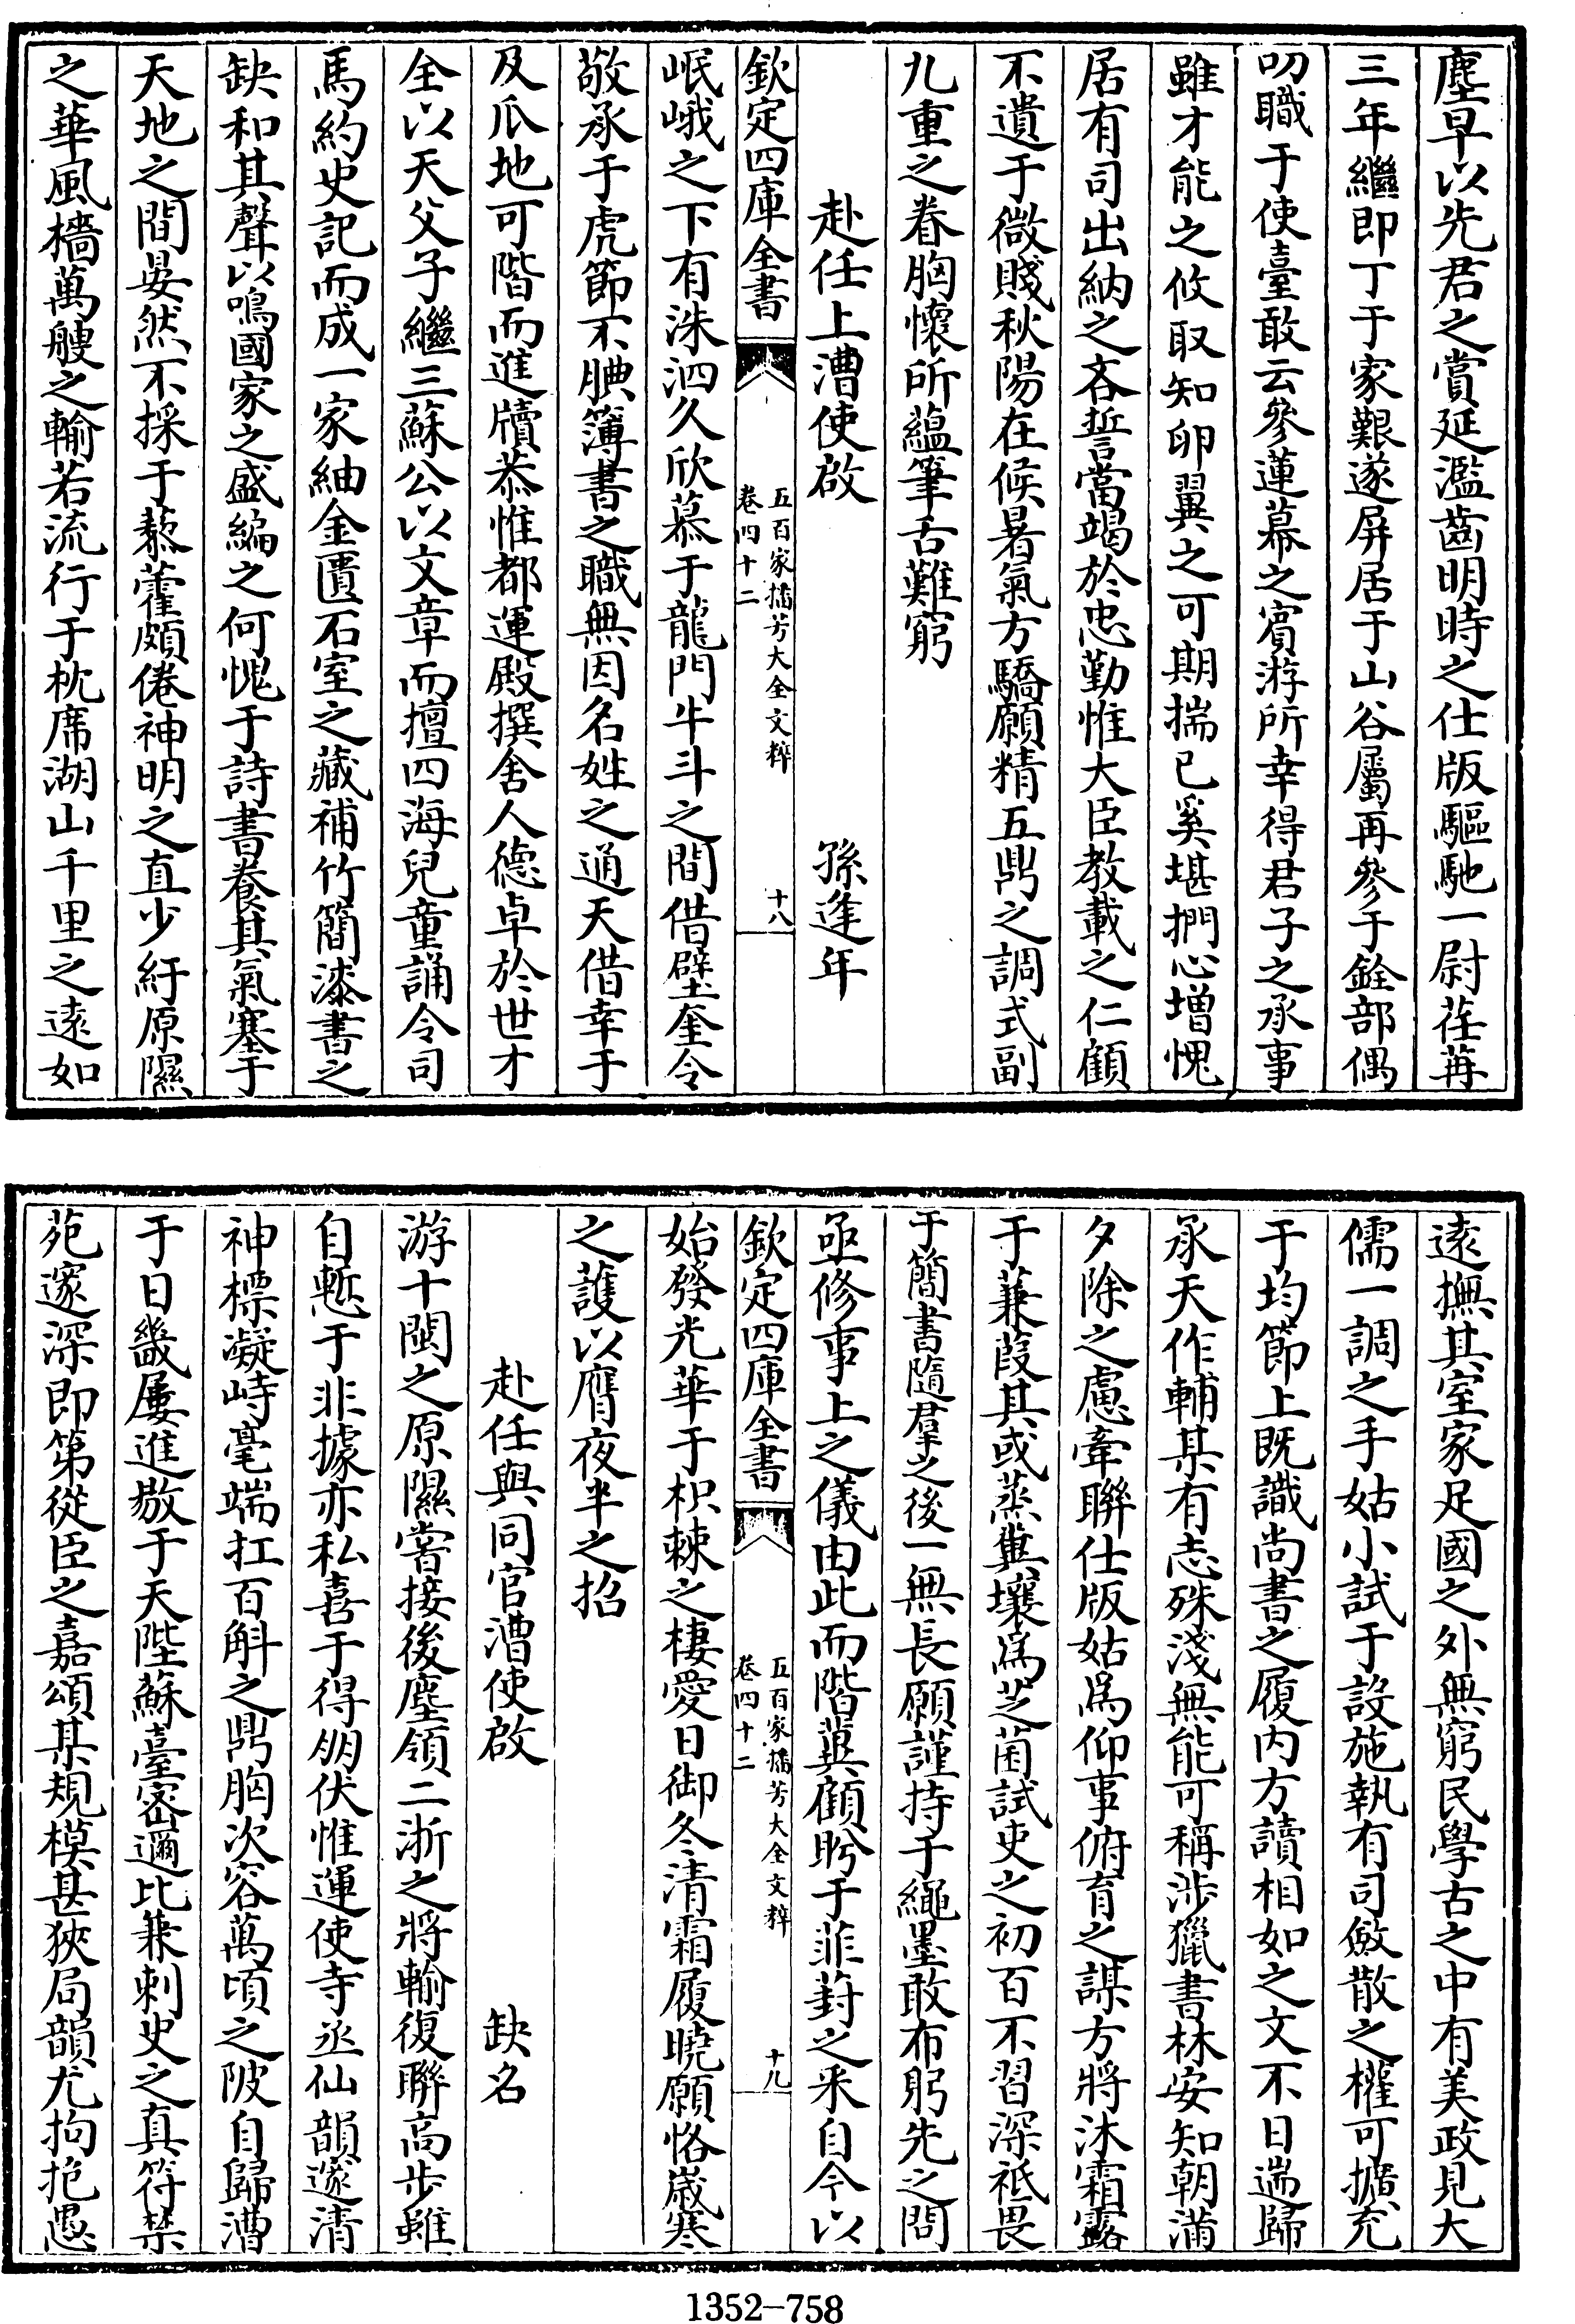 塵早以先君之賞延濫齒明時之仕版驅馳一尉荏苒
三年繼即丁于家艱遂屏居于山谷屬再參于銓部偶
叨職于使臺敢云參蓮幕之賓游所幸得君子之承事
雖才能之攸取知卵翼之可期揣已奚堪捫心增愧
居有司出納之吝誓當竭於忠勤惟大臣教載之仁顧
不遺于微賤秋陽在候暑氣方驕願精五鼎之調式副
九重之眷胸懷所蘊筆舌難窮
赴任上漕使啟 孫逢年
欽定四庫全書 五百家播芳大全文粹 卷四十二 十八
岷峨之下有洙泗久欣慕于龍門牛斗之間借壁奎令
敬承于虎節不腆簿書之職無因名姓之通天借幸于
及瓜地可階而進牘恭惟都運殿撰舍人德卓於世才
全以天父子繼三蘇公以文章而擅四海兒童誦令司
馬約史記而成一家紬金匱石室之藏補竹簡漆書之
缺和其聲以鳴國家之盛編之何愧于詩書養其氣塞于
天地之間晏然不採于藜藿頗倦神明之直少紆原隰
之華風檣萬艘之輸若流行于枕席湖山千里之遠如
遠撫其室家足國之外無窮民學古之中有美政見大
儒一調之手姑小試于設施執有司斂散之權可擴充
于均節上既識尚書之履内方讀相如之文不日遄歸
承天作輔某有志殊淺無能可稱涉獵書林安知朝滿
夕除之慮牽聯仕版姑為仰事俯育之謀方將沐霜露
于蒹葭其或蒸糞壤為芝菌試吏之初百不習深祗畏
于簡書隨羣之後一無長願謹持于繩墨敢布躬先之問
亟修事上之儀由此而階冀顧盻于菲葑之采自今以
欽定四庫全書 五百家播芳大全文粹 卷四十二 十九
始發光華于枳棘之棲愛日御冬清霜履曉願恪嵗寒
之護以膺夜半之招
赴任與同官漕使啟 缺名
游十閩之原隰嘗接後塵領二浙之將輸復聯高步雖
自慙于非據亦私喜于得朋伏惟運使寺丞仙韻邃清
神標凝峙毫端扛百斛之鼎胸次容萬頃之陂自歸漕
于日畿屢進敭于天陛蘇臺密邇比兼刺史之真符禁
苑邃深即第從臣之嘉頌某規模甚狹局韻尤拘抱愚
1352-758